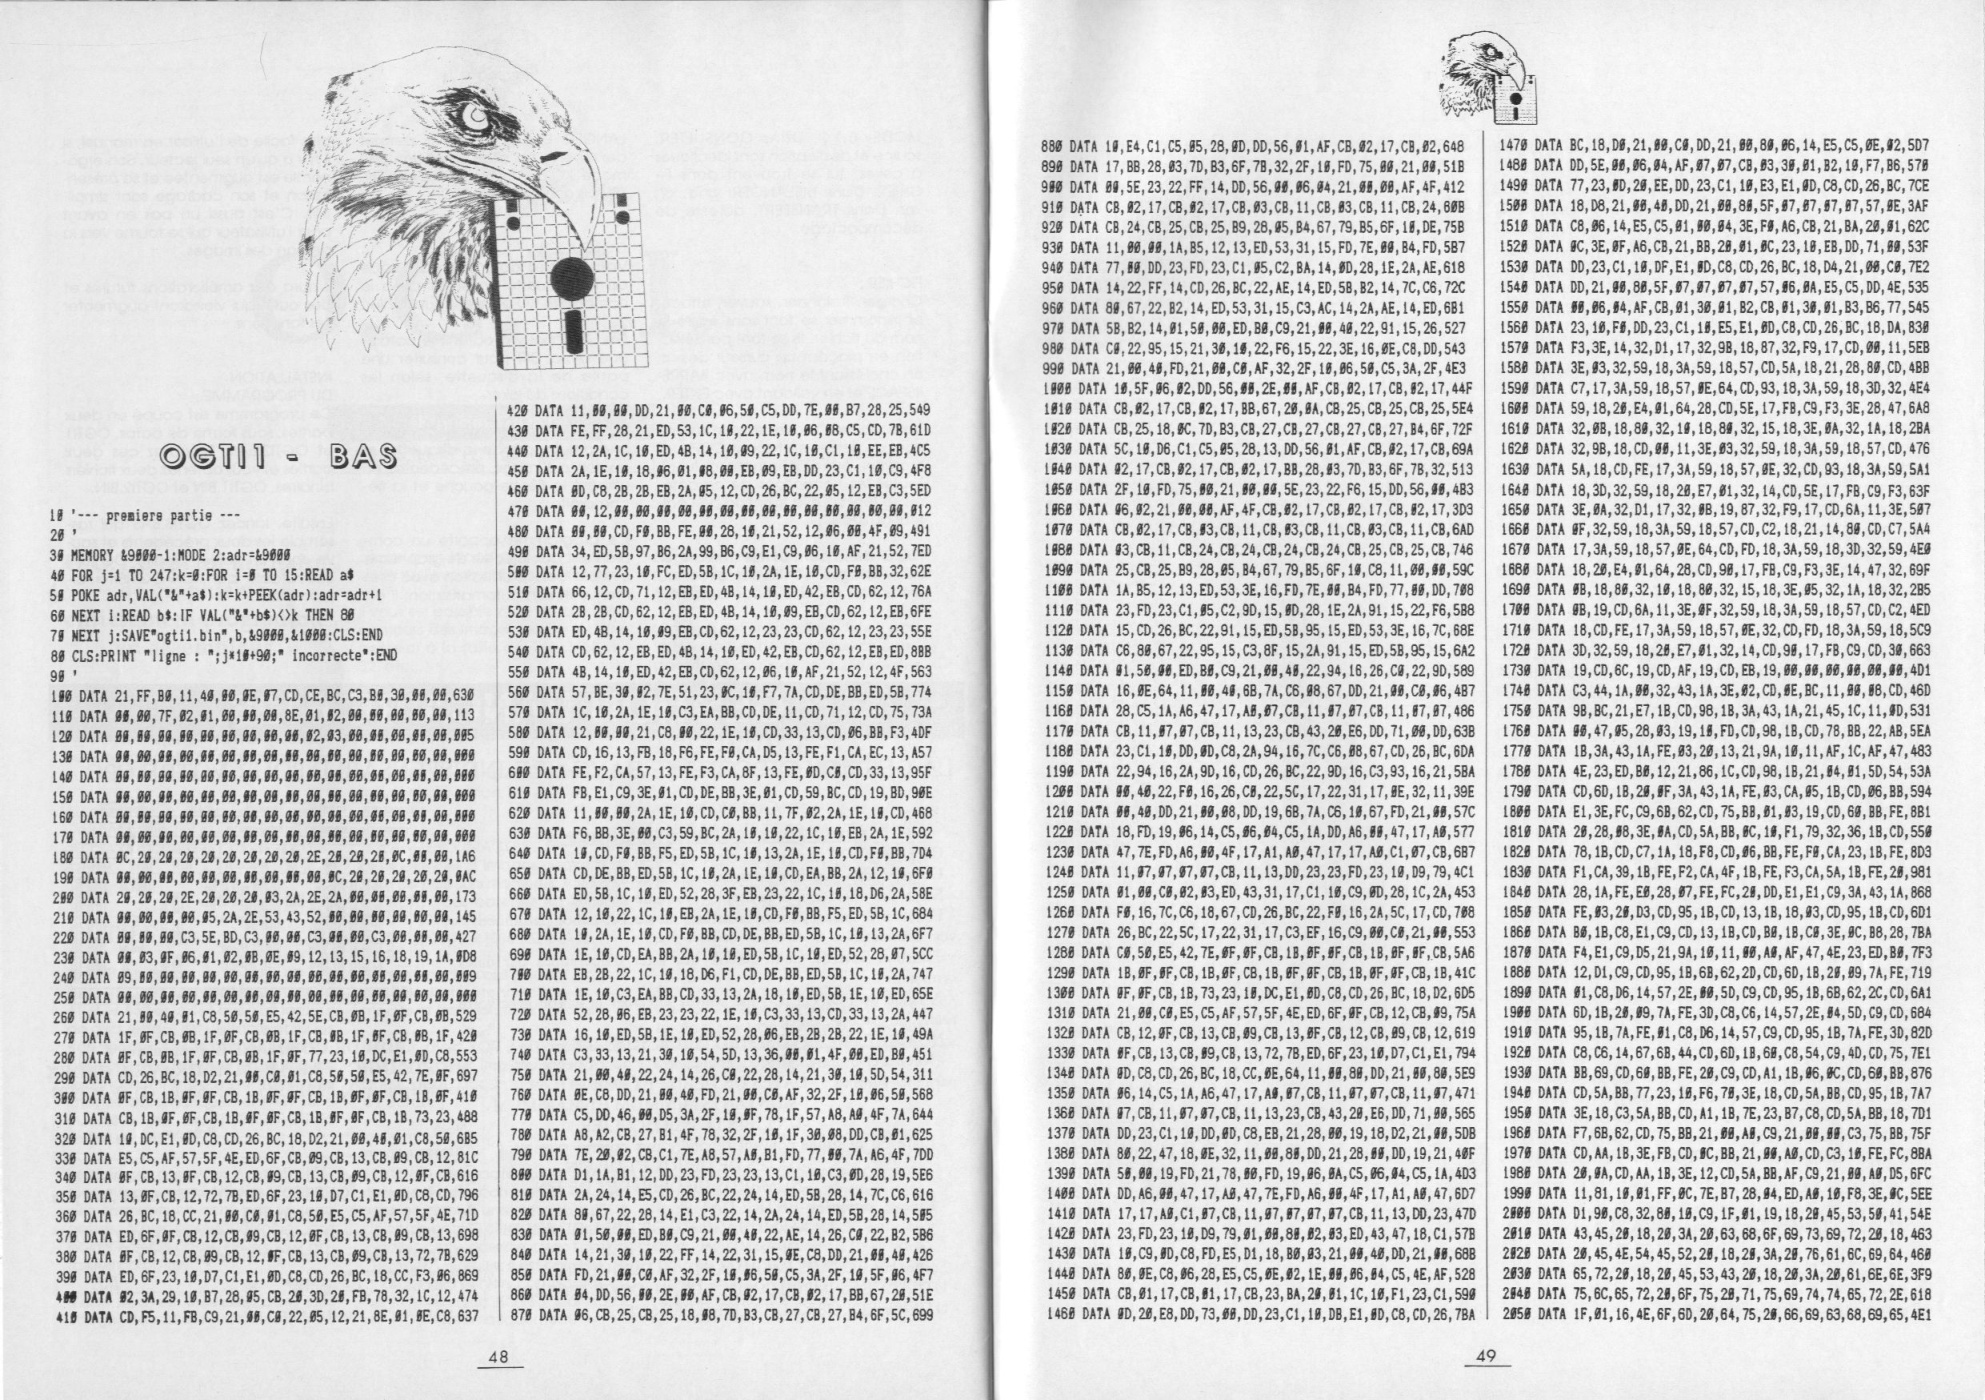 OGTI1 - BAS
10 '--- premiere partie ---
20 '
30 MEMORY &9000-1:MODE 2:adr=&9000
40 FOR j=1 TO 247:k=0:FOR i=0 TO 15:READ a$
50 POKE adr,VAL("&"+a$):k=k+PEEK(adr):adr=adr+1
60 NEXT i:READ b$:IF VAL("&"+b$)<>k THEN 80
70 NEXT j:SAVE"ogti1.bin",b,&9000,&1000:CLS:END
80 CLS:PRINT "ligne : ";j*10+90;" incorrecte":END
90 '
100 DATA 21,FF,B0,11,40,00,0E,07,CD,CE,BC,C3,B0,30,00,00,630
110 DATA 00,00,7F,02,01,00,00,00,8E,01,02,00,00,00,00,00,113
120 DATA 00,00,00,00,00,00,00,00,00,02,03,00,00,00,00,00,005
130 DATA 00,00,00,00,00,00,00,00,00,00,00,00,00,00,00,00,000
140 DATA 00,00,00,00,00,00,00,00,00,00,00,00,00,00,00,00,000
150 DATA 00,00,00,00,00,00,00,00,00,00,00,00,00,00,00,00,000
160 DATA 00,00,00,00,00,00,00,00,00,00,00,00,00,00,00,00,000
170 DATA 00,00,00,00,00,00,00,00,00,00,00,00,00,00,00,00,000
180 DATA 0C,20,20,20,20,20,20,20,20,2E,20,20,20,0C,00,00,1A6
190 DATA 00,00,00,00,00,00,00,00,00,00,0C,20,20,20,20,20,0AC
200 DATA 20,20,20,2E,20,20,20,03,2A,2E,2A,00,00,00,00,00,173
210 DATA 00,00,00,00,05,2A,2E,53,43,52,00,00,00,00,00,00,145
220 DATA 00,00,00,C3,5E,BD,C3,00,00,C3,00,00,C3,00,00,00,427
230 DATA 00,03,0F,06,01,02,0B,0E,09,12,13,15,16,18,19,1A,0D8
240 DATA 09,00,00,00,00,00,00,00,00,00,00,00,00,00,00,00,009
250 DATA 00,00,00,00,00,00,00,00,00,00,00,00,00,00,00,00,000
260 DATA 21,00,40,01,C8,50,50,E5,42,5E,CB,0B,1F,0F,CB,0B,529
270 DATA 1F,0F,CB,0B,1F,0F,CB,0B,1F,CB,0B,1F,0F,CB,0B,1F,420
280 DATA 0F,CB,0B,1F,0F,CB,0B,1F,0F,77,23,10,DC,E1,0D,C8,553
290 DATA CD,26,BC,18,D2,21,00,C0,01,C8,50,50,E5,42,7E,0F,697
300 DATA 0F,CB,1B,0F,0F,CB,1B,0F,0F,CB,1B,0F,0F,CB,1B,0F,410
310 DATA CB,1B,0F,0F,CB,1B,0F,0F,CB,1B,0F,0F,CB,1B,73,23,488
320 DATA 10,DC,E1,0D,C8,CD,26,BC,18,D2,21,00,40,01,C8,50,6B5
330 DATA E5,C5,AF,57,5F,4E,ED,6F,CB,09,CB,13,CB,09,CB,12,81C
340 DATA 0F,CB,13,0F,CB,12,CB,09,CB,13,CB,09,CB,12,0F,CB,616
350 DATA 13,0F,CB,12,72,7B,ED,6F,23,10,D7,C1,E1,0D,C8,CD,796
360 DATA 26,BC,18,CC,21,00,C0,01,C8,50,E5,C5,AF,57,5F,4E,71D
370 DATA ED,6F,0F,CB,12,CB,09,CB,12,0F,CB,13,CB,09,CB,13,698
380 DATA 0F,CB,12,CB,09,CB,12,0F,CB,13,CB,09,CB,13,72,7B,629
390 DATA ED,6F,23,10,D7,C1,E1,0D,C8,CD,26,BC,18,CC,F3,06,869
400 DATA 02,3A,29,10,B7,28,05,CB,20,3D,20,FB,78,32,1C,12,474
410 DATA CD,F5,11,FB,C9,21,00,C0,22,05,12,21,8E,01,0E,C8,637
420 DATA 11,00,00,DD,21,00,C0,06,50,C5,DD,7E,00,B7,28,25,549
430 DATA FE,FF,28,21,ED,53,1C,10,22,1E,10,06,08,C5,CD,7B,61D
440 DATA 12,2A,1C,10,ED,4B,14,10,09,22,1C,10,C1,10,EE,EB,4C5
450 DATA 2A,1E,10,18,06,01,08,00,EB,09,EB,DD,23,C1,10,C9,4F8
460 DATA 0D,C8,2B,2B,EB,2A,05,12,CD,26,BC,22,05,12,EB,C3,5ED
470 DATA 00,12,00,00,00,00,00,00,00,00,00,00,00,00,00,00,012
480 DATA 00,00,CD,F0,BB,FE,00,28,10,21,52,12,06,00,4F,09,491
490 DATA 34,ED,5B,97,B6,2A,99,B6,C9,E1,C9,06,10,AF,21,52,7ED
500 DATA 12,77,23,10,FC,ED,5B,1C,10,2A,1E,10,CD,F0,BB,32,62E
510 DATA 66,12,CD,71,12,EB,ED,4B,14,10,ED,42,EB,CD,62,12,76A
520 DATA 2B,2B,CD,62,12,EB,ED,4B,14,10,09,EB,CD,62,12,EB,6FE
530 DATA ED,4B,14,10,09,EB,CD,62,12,23,23,CD,62,12,23,23,55E
540 DATA CD,62,12,EB,ED,4B,14,10,ED,42,EB,CD,62,12,EB,ED,8BB
550 DATA 4B,14,10,ED,42,EB,CD,62,12,06,10,AF,21,52,12,4F,563
560 DATA 57,BE,30,02,7E,51,23,0C,10,F7,7A,CD,DE,BB,ED,5B,774
570 DATA 1C,10,2A,1E,10,C3,EA,BB,CD,DE,11,CD,71,12,CD,75,73A
580 DATA 12,00,00,21,C8,00,22,1E,10,CD,33,13,CD,06,BB,F3,4DF
590 DATA CD,16,13,FB,18,F6,FE,F0,CA,D5,13,FE,F1,CA,EC,13,A57
600 DATA FE,F2,CA,57,13,FE,F3,CA,8F,13,FE,0D,C0,CD,33,13,95F
610 DATA FB,E1,C9,3E,01,CD,DE,BB,3E,01,CD,59,BC,CD,19,BD,90E
620 DATA 11,00,00,2A,1E,10,CD,C0,BB,11,7F,02,2A,1E,10,CD,468
630 DATA F6,BB,3E,00,C3,59,BC,2A,10,10,22,1C,10,EB,2A,1E,592
640 DATA 10,CD,F0,BB,F5,ED,5B,1C,10,13,2A,1E,10,CD,F0,BB,7D4
650 DATA CD,DE,BB,ED,5B,1C,10,2A,1E,10,CD,EA,BB,2A,12,10,6F0
660 DATA ED,5B,1C,10,ED,52,28,3F,EB,23,22,1C,10,18,D6,2A,58E
670 DATA 12,10,22,1C,10,EB,2A,1E,10,CD,F0,BB,F5,ED,5B,1C,684
680 DATA 10,2A,1E,10,CD,F0,BB,CD,DE,BB,ED,5B,1C,10,13,2A,6F7
690 DATA 1E,10,CD,EA,BB,2A,10,10,ED,5B,1C,10,ED,52,28,07,5CC
700 DATA EB,2B,22,1C,10,18,D6,F1,CD,DE,BB,ED,5B,1C,10,2A,747
710 DATA 1E,10,C3,EA,BB,CD,33,13,2A,18,10,ED,5B,1E,10,ED,65E
720 DATA 52,28,06,EB,23,23,22,1E,10,C3,33,13,CD,33,13,2A,447
730 DATA 16,10,ED,5B,1E,10,ED,52,28,06,EB,2B,2B,22,1E,10,49A
740 DATA C3,33,13,21,30,10,54,5D,13,36,00,01,4F,00,ED,B0,451
750 DATA 21,00,40,22,24,14,26,C0,22,28,14,21,30,10,5D,54,311
760 DATA 0E,C8,DD,21,00,40,FD,21,00,C0,AF,32,2F,10,06,50,568
770 DATA C5,DD,46,00,D5,3A,2F,10,0F,78,1F,57,A8,A0,4F,7A,644
780 DATA A8,A2,CB,27,B1,4F,78,32,2F,10,1F,30,08,DD,CB,01,625
790 DATA 7E,20,02,CB,C1,7E,A8,57,A0,B1,FD,77,00,7A,A6,4F,7DD
800 DATA D1,1A,B1,12,DD,23,FD,23,23,13,C1,10,C3,0D,28,19,5E6
810 DATA 2A,24,14,E5,CD,26,BC,22,24,14,ED,5B,28,14,7C,C6,616
820 DATA 80,67,22,28,14,E1,C3,22,14,2A,24,14,ED,5B,28,14,505
830 DATA 01,50,00,ED,B0,C9,21,00,40,22,AE,14,26,C0,22,B2,5B6
840 DATA 14,21,30,10,22,FF,14,22,31,15,0E,C8,DD,21,00,40,426
850 DATA FD,21,00,C0,AF,32,2F,10,06,50,C5,3A,2F,10,5F,06,4F7
860 DATA 04,DD,56,00,2E,00,AF,CB,02,17,CB,02,17,BB,67,20,51E
870 DATA 06,CB,25,CB,25,18,08,7D,B3,CB,27,CB,27,B4,6F,5C,699
48
880 DATA 10,E4,C1,C5,05,28,0D,DD,56,01,AF,CB,02,17,CB,02,648
890 DATA 17,BB,28,03,7D,B3,6F,7B,32,2F,10,FD,75,00,21,00,51B
900 DATA 00,5E,23,22,FF,14,DD,56,00,06,04,21,00,00,AF,4F,412
910 DATA CB,02,17,CB,02,17,CB,03,CB,11,CB,03,CB,11,CB,24,60B
920 DATA CB,24,CB,25,CB,25,B9,28,05,B4,67,79,B5,6F,10,DE,75B
930 DATA 11,00,00,1A,B5,12,13,ED,53,31,15,FD,7E,00,B4,FD,5B7
940 DATA 77,00,DD,23,FD,23,C1,05,C2,BA,14,0D,28,1E,2A,AE,618
950 DATA 14,22,FF,14,CD,26,BC,22,AE,14,ED,5B,B2,14,7C,C6,72C
960 DATA 80,67,22,B2,14,ED,53,31,15,C3,AC,14,2A,AE,14,ED,6B1
970 DATA 5B,B2,14,01,50,00,ED,B0,C9,21,00,40,22,91,15,26,527
980 DATA C0,22,95,15,21,30,10,22,F6,15,22,3E,16,0E,C8,DD,543
990 DATA 21,00,40,FD,21,00,C0,AF,32,2F,10,06,50,C5,3A,2F,4E3
1000 DATA 10,5F,06,02,DD,56,00,2E,00,AF,CB,02,17,CB,02,17,44F
1010 DATA CB,02,17,CB,02,17,BB,67,20,0A,CB,25,CB,25,CB,25,5E4
1020 DATA CB,25,18,0C,7D,B3,CB,27,CB,27,CB,27,CB,27,B4,6F,72F
1030 DATA 5C,10,D6,C1,C5,05,28,13,DD,56,01,AF,CB,02,17,CB,69A
1040 DATA 02,17,CB,02,17,CB,02,17,BB,28,03,7D,B3,6F,7B,32,513
1050 DATA 2F,10,FD,75,00,21,00,00,5E,23,22,F6,15,DD,56,00,4B3
1060 DATA 06,02,21,00,00,AF,4F,CB,02,17,CB,02,17,CB,02,17,3D3
1070 DATA CB,02,17,CB,03,CB,11,CB,03,CB,11,CB,03,CB,11,CB,6AD
1080 DATA 03,CB,11,CB,24,CB,24,CB,24,CB,24,CB,25,CB,25,CB,746
1090 DATA 25,CB,25,B9,28,05,B4,67,79,B5,6F,10,C8,11,00,00,59C
1100 DATA 1A,B5,12,13,ED,53,3E,16,FD,7E,00,B4,FD,77,00,DD,708
1110 DATA 23,FD,23,C1,05,C2,9D,15,0D,28,1E,2A,91,15,22,F6,5B8
1120 DATA 15,CD,26,BC,22,91,15,ED,5B,95,15,ED,53,3E,16,7C,68E
1130 DATA C6,80,67,22,95,15,C3,8F,15,2A,91,15,ED,5B,95,15,6A2
1140 DATA 01,50,00,ED,B0,C9,21,00,40,22,94,16,26,C0,22,9D,589
1150 DATA 16,0E,64,11,00,40,6B,7A,C6,08,67,DD,21,00,C0,06,4B7
1160 DATA 28,C5,1A,A6,47,17,A0,07,CB,11,07,07,CB,11,07,07,486
1170 DATA CB,11,07,07,CB,11,13,23,CB,43,20,E6,DD,71,00,DD,63B
1180 DATA 23,C1,10,DD,0D,C8,2A,94,16,7C,C6,08,67,CD,26,BC,6DA
1190 DATA 22,94,16,2A,9D,16,CD,26,BC,22,9D,16,C3,93,16,21,5BA
1200 DATA 00,40,22,F0,16,26,C0,22,5C,17,22,31,17,0E,32,11,39E
1210 DATA 00,40,DD,21,00,08,DD,19,6B,7A,C6,10,67,FD,21,00,57C
1220 DATA 18,FD,19,06,14,C5,06,04,C5,1A,DD,A6,00,47,17,A0,577
1230 DATA 47,7E,FD,A6,00,4F,17,A1,A0,47,17,17,A0,C1,07,CB,6B7
1240 DATA 11,07,07,07,07,CB,11,13,DD,23,23,FD,23,10,D9,79,4C1
1250 DATA 01,00,C0,02,03,ED,43,31,17,C1,10,C9,0D,28,1C,2A,453
1260 DATA F0,16,7C,C6,18,67,CD,26,BC,22,F0,16,2A,5C,17,CD,708
1270 DATA 26,BC,22,5C,17,22,31,17,C3,EF,16,C9,00,C0,21,00,553
1280 DATA C0,50,E5,42,7E,0F,0F,CB,1B,0F,0F,CB,1B,0F,0F,CB,5A6
1290 DATA 1B,0F,0F,CB,1B,0F,CB,1B,0F,0F,CB,1B,0F,0F,CB,1B,41C
1300 DATA 0F,0F,CB,1B,73,23,10,DC,E1,0D,C8,CD,26,BC,18,D2,6D5
1310 DATA 21,00,C0,E5,C5,AF,57,5F,4E,ED,6F,0F,CB,12,CB,09,75A
1320 DATA CB,12,0F,CB,13,CB,09,CB,13,0F,CB,12,CB,09,CB,12,619
1330 DATA 0F,CB,13,CB,09,CB,13,72,7B,ED,6F,23,10,D7,C1,E1,794
1340 DATA 0D,C8,CD,26,BC,18,CC,0E,64,11,00,80,DD,21,00,80,5E9
1350 DATA 06,14,C5,1A,A6,47,17,A0,07,CB,11,07,07,CB,11,07,471
1360 DATA 07,CB,11,07,07,CB,11,13,23,CB,43,20,E6,DD,71,00,565
1370 DATA DD,23,C1,10,DD,0D,C8,EB,21,28,00,19,18,D2,21,00,5DB
1380 DATA 80,22,47,18,0E,32,11,00,80,DD,21,28,00,DD,19,21,40F
1390 DATA 50,00,19,FD,21,78,00,FD,19,06,0A,C5,06,04,C5,1A,4D3
1400 DATA DD,A6,00,47,17,A0,47,7E,FD,A6,00,4F,17,A1,A0,47,6D7
1410 DATA 17,17,A0,C1,07,CB,11,07,07,07,07,CB,11,13,DD,23,47D
1420 DATA 23,FD,23,10,D9,79,01,00,80,02,03,ED,43,47,18,C1,57B
1430 DATA 10,C9,0D,C8,FD,E5,D1,18,B0,03,21,00,40,DD,21,00,68B
1440 DATA 80,0E,C8,06,28,E5,C5,0E,02,1E,00,06,04,C5,4E,AF,528
1450 DATA CB,01,17,CB,01,17,CB,23,BA,20,01,1C,10,F1,23,C1,590
1460 DATA 0D,20,E8,DD,73,00,DD,23,C1,10,DB,E1,0D,C8,CD,26,7BA
1470 DATA BC,18,D0,21,00,C0,DD,21,00,80,06,14,E5,C5,0E,02,5D7
1480 DATA DD,5E,00,06,04,AF,07,07,CB,03,30,01,B2,10,F7,B6,570
1490 DATA 77,23,0D,20,EE,DD,23,C1,10,E3,E1,0D,C8,CD,26,BC,7CE
1500 DATA 18,D8,21,00,40,DD,21,00,80,5F,07,07,07,07,57,0E,3AF
1510 DATA C8,06,14,E5,C5,01,00,04,3E,F0,A6,CB,21,BA,20,01,62C
1520 DATA 0C,3E,0F,A6,CB,21,BB,20,01,0C,23,10,EB,DD,71,00,53F
1530 DATA DD,23,C1,10,DF,E1,0D,C8,CD,26,BC,18,D4,21,00,C0,7E2
1540 DATA DD,21,00,80,5F,07,07,07,07,57,06,0A,E5,C5,DD,4E,535
1550 DATA 00,06,04,AF,CB,01,30,01,B2,CB,01,30,01,B3,B6,77,545
1560 DATA 23,10,F0,DD,23,C1,10,E5,E1,0D,C8,CD,26,BC,18,DA,830
1570 DATA F3,3E,14,32,D1,17,32,9B,18,87,32,F9,17,CD,00,11,5EB
1580 DATA 3E,03,32,59,18,3A,59,18,57,CD,5A,18,21,28,80,CD,4BB
1590 DATA C7,17,3A,59,18,57,0E,64,CD,93,18,3A,59,18,3D,32,4E4
1600 DATA 59,18,20,E4,01,64,28,CD,5E,17,FB,C9,F3,3E,28,47,6A8
1610 DATA 32,0B,18,80,32,10,18,80,32,15,18,3E,0A,32,1A,18,2BA
1620 DATA 32,9B,18,CD,00,11,3E,03,32,59,18,3A,59,18,57,CD,476
1630 DATA 5A,18,CD,FE,17,3A,59,18,57,0E,32,CD,93,18,3A,59,5A1
1640 DATA 18,3D,32,59,18,20,E7,01,32,14,CD,5E,17,FB,C9,F3,63F
1650 DATA 3E,0A,32,D1,17,32,0B,19,87,32,F9,17,CD,6A,11,3E,507
1660 DATA 0F,32,59,18,3A,59,18,57,CD,C2,18,21,14,80,CD,C7,5A4
1670 DATA 17,3A,59,18,57,0E,64,CD,FD,18,3A,59,18,3D,32,59,4E0
1680 DATA 18,20,E4,01,64,28,CD,90,17,FB,C9,F3,3E,14,47,32,69F
1690 DATA 0B,18,80,32,10,18,80,32,15,18,3E,05,32,1A,18,32,2B5
1700 DATA 0B,19,CD,6A,11,3E,0F,32,59,18,3A,59,18,57,CD,C2,4ED
1710 DATA 18,CD,FE,17,3A,59,18,57,0E,32,CD,FD,18,3A,59,18,5C9
1720 DATA 3D,32,59,18,20,E7,01,32,14,CD,90,17,FB,C9,CD,30,663
1730 DATA 19,CD,6C,19,CD,AF,19,CD,EB,19,00,00,00,00,00,00,4D1
1740 DATA C3,44,1A,00,32,43,1A,3E,02,CD,0E,BC,11,00,08,CD,46D
1750 DATA 9B,BC,21,E7,1B,CD,98,1B,3A,43,1A,21,45,1C,11,0D,531
1760 DATA 00,47,05,28,03,19,10,FD,CD,98,1B,CD,78,BB,22,AB,5EA
1770 DATA 1B,3A,43,1A,FE,03,20,13,21,9A,10,11,AF,1C,AF,47,483
1780 DATA 4E,23,ED,B0,12,21,86,1C,CD,98,1B,21,04,01,5D,54,53A
1790 DATA CD,6D,1B,20,0F,3A,43,1A,FE,03,CA,05,1B,CD,06,BB,594
1800 DATA E1,3E,FC,C9,6B,62,CD,75,BB,01,03,19,CD,60,BB,FE,8B1
1810 DATA 20,28,08,3E,0A,CD,5A,BB,0C,10,F1,79,32,36,1B,CD,550
1820 DATA 78,1B,CD,C7,1A,18,F8,CD,06,BB,FE,F0,CA,23,1B,FE,8D3
1830 DATA F1,CA,39,1B,FE,F2,CA,4F,1B,FE,F3,CA,5A,1B,FE,20,981
1840 DATA 28,1A,FE,E0,28,07,FE,FC,20,DD,E1,E1,C9,3A,43,1A,868
1850 DATA FE,03,20,D3,CD,95,1B,CD,13,1B,18,03,CD,95,1B,CD,6D1
1860 DATA B0,1B,C8,E1,C9,CD,13,1B,CD,B0,1B,C0,3E,0C,B8,28,7BA
1870 DATA F4,E1,C9,D5,21,9A,10,11,00,A0,AF,47,4E,23,ED,B0,7F3
1880 DATA 12,D1,C9,CD,95,1B,6B,62,2D,CD,6D,1B,20,09,7A,FE,719
1890 DATA 01,C8,D6,14,57,2E,00,5D,C9,CD,95,1B,6B,62,2C,CD,6A1
1900 DATA 6D,1B,20,09,7A,FE,3D,C8,C6,14,57,2E,04,5D,C9,CD,684
1910 DATA 95,1B,7A,FE,01,C8,D6,14,57,C9,CD,95,1B,7A,FE,3D,82D
1920 DATA C8,C6,14,67,6B,44,CD,6D,1B,60,C8,54,C9,4D,CD,75,7E1
1930 DATA BB,69,CD,60,BB,FE,20,C9,CD,A1,1B,06,0C,CD,60,BB,876
1940 DATA CD,5A,BB,77,23,10,F6,70,3E,18,CD,5A,BB,CD,95,1B,7A7
1950 DATA 3E,18,C3,5A,BB,CD,A1,1B,7E,23,B7,C8,CD,5A,BB,18,7D1
1960 DATA F7,6B,62,CD,75,BB,21,00,A0,C9,21,00,00,C3,75,BB,75F
1970 DATA CD,AA,1B,3E,FB,CD,0C,BB,21,00,A0,CD,C3,10,FE,FC,8BA
1980 DATA 20,0A,CD,AA,1B,3E,12,CD,5A,BB,AF,C9,21,00,A0,D5,6FC
1990 DATA 11,81,10,01,FF,0C,7E,B7,28,04,ED,A0,10,F8,3E,0C,5EE
2000 DATA D1,90,C8,32,80,10,C9,1F,01,19,18,20,45,53,50,41,54E
2010 DATA 43,45,20,18,20,3A,20,63,68,6F,69,73,69,72,20,18,463
2020 DATA 20,45,4E,54,45,52,20,18,20,3A,20,76,61,6C,69,64,460
2030 DATA 65,72,20,18,20,45,53,43,20,18,20,3A,20,61,6E,6E,3F9
2040 DATA 75,6C,65,72,20,6F,75,20,71,75,69,74,74,65,72,2E,618
2050 DATA 1F,01,16,4E,6F,6D,20,64,75,20,66,69,63,68,69,65,4E1
49